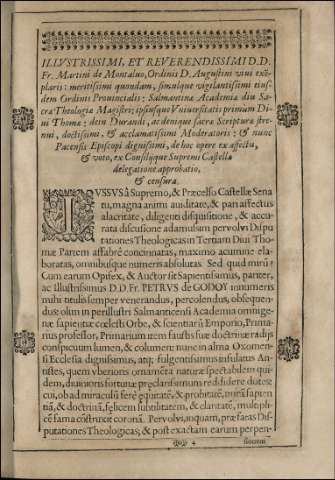 ILLVSTRISSIMI, ET REVERENDISSIMI D.D.
Fr. Martini de Montaluo, Ordinis D. Augustini viui exē-
plaris: meritissimi quondam, simulque vigilantissimi eius-
dem Ordinis Prouincialis: Salmantinæ Academiæ diu Sa-
cræ Theologiæ Magistri; ipsiusque Vniuersitatis primum Di-
ui Thomæ: dein Durandi, ac denique sacræ Scripturæ stre-
nui, doctissimi, & acclamatissimi Moderatoris: & nunc
Pacensis Episcopi dignissimi, de hoc opere ex affectu,
& voto, ex Consilijque Supremi Castellæ
delegatione approbatio,
& censura.
IVSSVS à Supremo, & Præcelso Castellæ Sena
tu, magna animi auiditate, & pari affectus
alacritate, diligenti disquisitione, & accu-
rata discussione adamussim pervolvi Dispu
tationes Theologicas in Tertiam Diui Tho-
mæ Partem affabrè concinnatas, maximo acumine ela-
boratas, omnibusque numeris absolutas. Sed quid miru ?
Cum earum Opifex, & Auctor sit Sapientissimus, pariter,
ac Illustrissimus D.D. Fr. PETRVS de GODOY innumeris
mihi titulis semper venerandus, percolendus, obsequen-
dus: olim in perillustri Salmanticensi Academia omnige-
næ sapientiæ cœlesti Orbe, & scientiarũ Emporio, Prima-
rius professor, Primarium item faustis suæ doctrinæ radijs
conspicuum lumen, & columen: nunc in alma Oxomen-
si Ecclesia dignissimus, atq; fulgentissimus insulatus An-
tistes, quem vberioris ornamẽta naturæ spectabilem qui-
dem, divitioris fortunæ præclarissimum reddidere dotes:
cui, ob ad miraculũ ferè equitatẽ, & probitatẽ, mirã sapien
tiã, & doctrinã, felicem subtilitatem, & claritatẽ, multipli-
cẽ fama cõstruxit coronã. Pervolvi, inquam, præfatas Dis-
putationes Theologicas; & post exactam earum perpen-
4
sionem